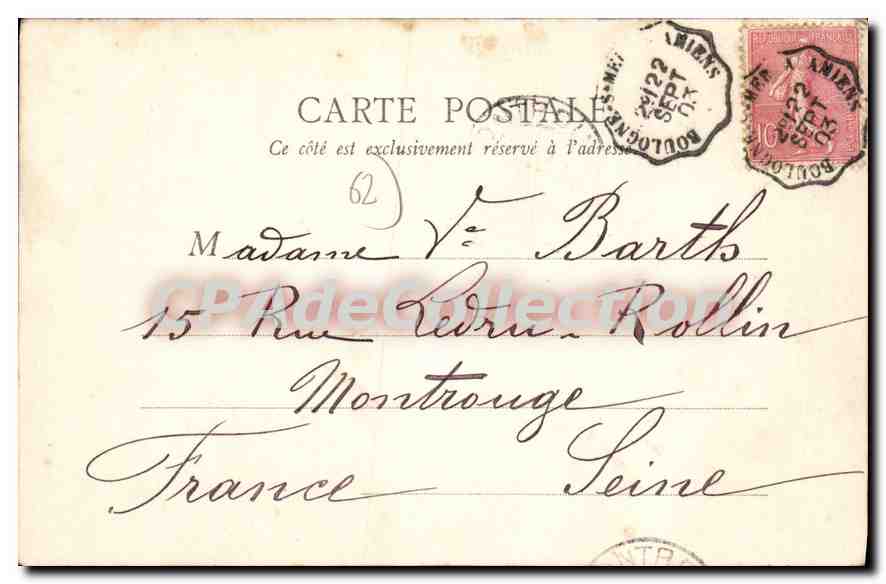 CARTE POSTALE
Ce côté est exclusivement réservé à l'adresse
BOULOGNE-S-MER A AMIENS
22
SEPT
03
REPUBLIQUE FRANÇAISE
10
BOULOGNE-S-MER A AMIENS
22
SEPT
03
62
Madame Vᵉ Barth
CPAdeCollection.com
15 Rue Ledru-Rollin
Montrouge
France Seine